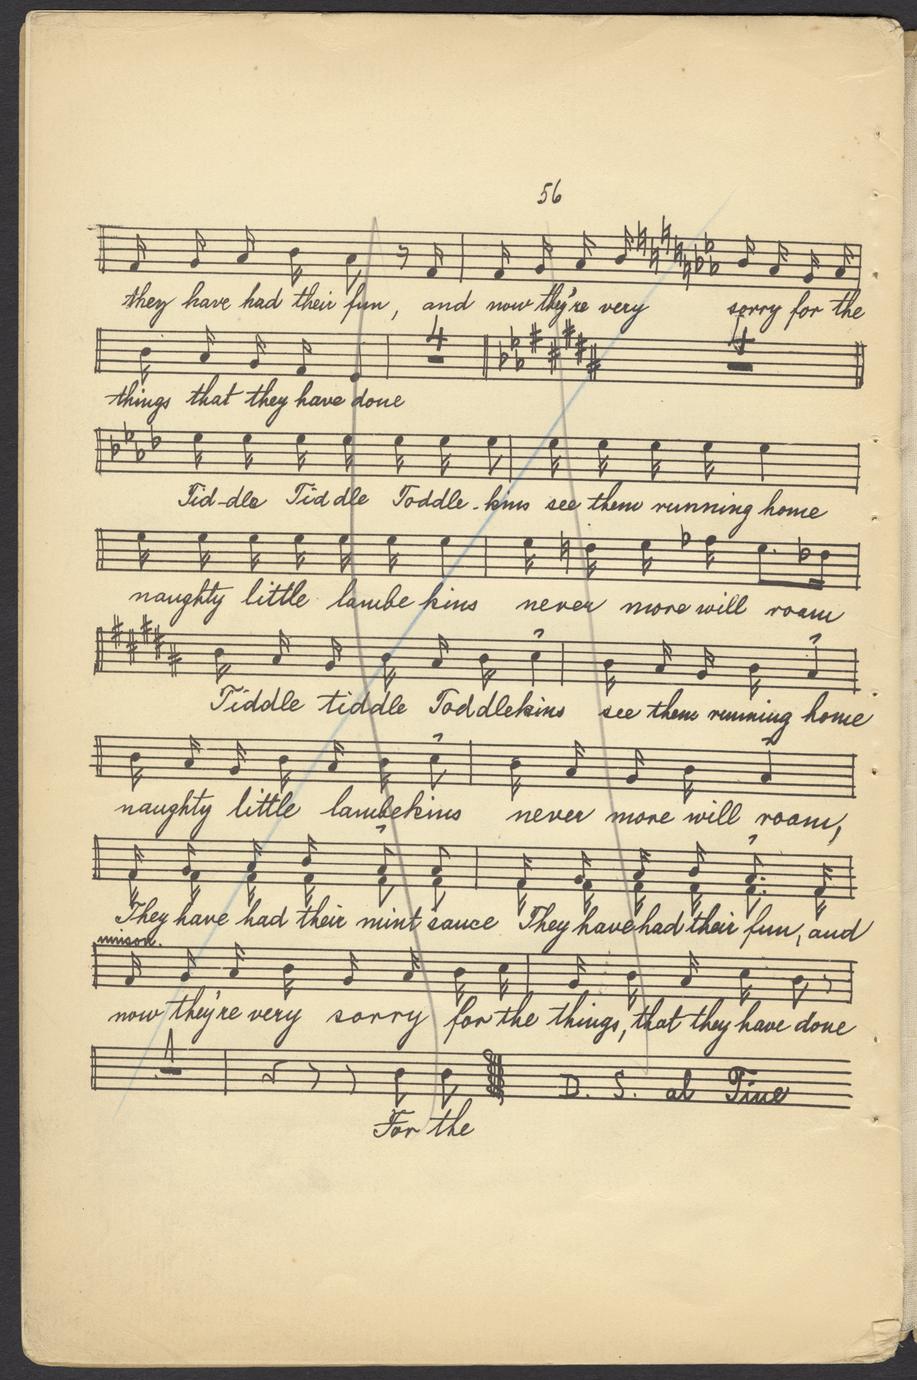 56
they have had their fun, and now they're very sorry for the
4 4
things that they have done
Tid-dle Tiddle Toddle-kins see them running home
naughty little lambe kins never more will roam
Tiddle tiddle Toddlekins see them running home
naughty little lambekins never more will roam,
They have had their mint sauce They have had their fun, and
unison.
now they're very sorry for the things, that they have done
1
D. S. al Fine
For the